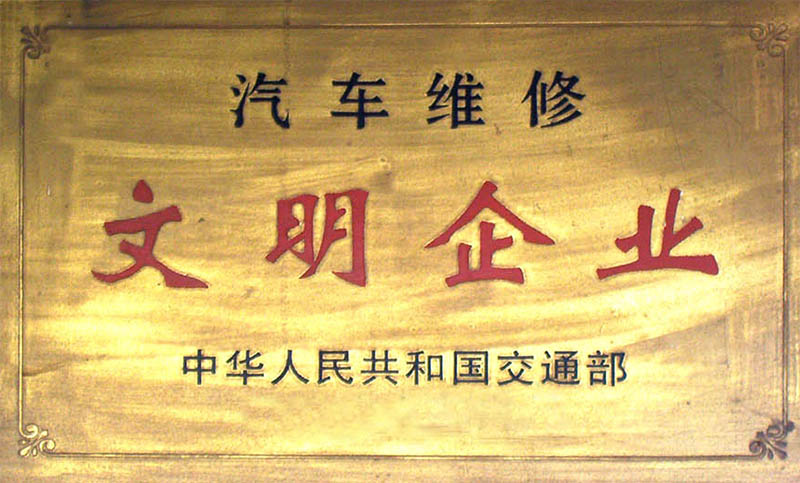 汽车维修
文明企业
中华人民共和国交通部